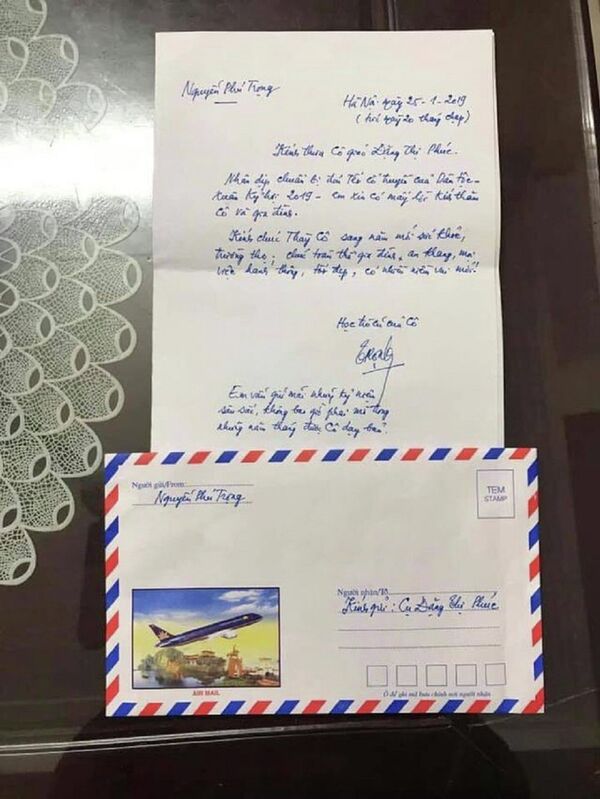 Nguyễn Phú Trọng
Hà Nội ngày 25-1-2019
(tức ngày 20 tháng chạp)
Kính thưa Cô giáo Đặng Thị Phúc.
Nhân dịp chuẩn bị đón Tết cổ truyền của Dân tộc -
Xuân Kỷ Hợi 2019 - em xin có mấy lời kính thăm
Cô và gia đình.
Kính chúc Thầy Cô sang năm mới sức khỏe,
trường thọ; chúc toàn thể gia đình, an khang, mọi
việc hanh thông, tốt đẹp, có nhiều niềm vui mới!
Học trò cũ của Cô
Trọng
Em vẫn giữ mãi những kỷ niệm
sâu sắc, không bao giờ phai mờ trong
những năm tháng được Cô dạy bảo.
Người gửi/From:
Nguyễn Phú Trọng
TEM
STAMP
Người nhận/To
Kính gửi: Cụ Đặng Thị Phúc
AIR MAIL
Ô để ghi mã bưu chính nơi người nhận